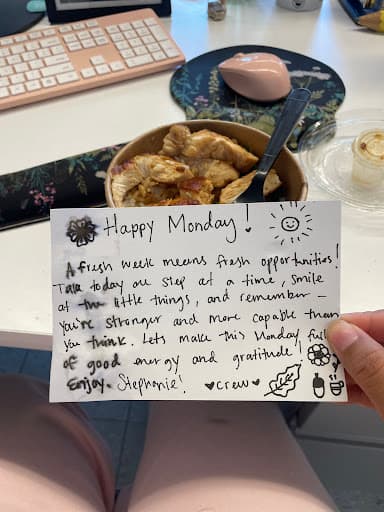 Happy Monday!
A fresh week means fresh opportunities!
Take today one step at a time, smile
at the little things, and remember -
you're stronger and more capable than
you think. Lets make this Monday full
of good energy and gratitude!
Enjoy. Stephanie! ♥crew♥